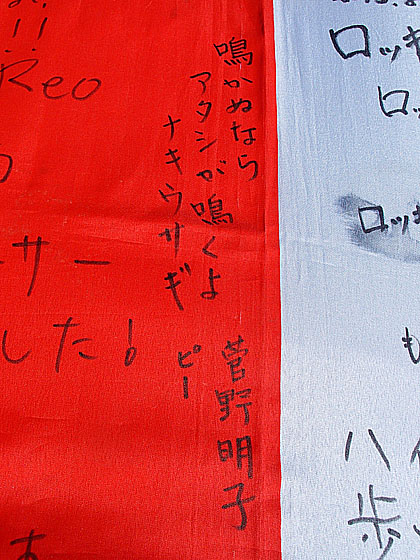 鳴かぬなら
アタシが鳴くよ
ナキウサギ
ピー
菅野明子
Reo
ーサー
した!
ロッキ
ロッ
ロッキ
も
ハイ
歩